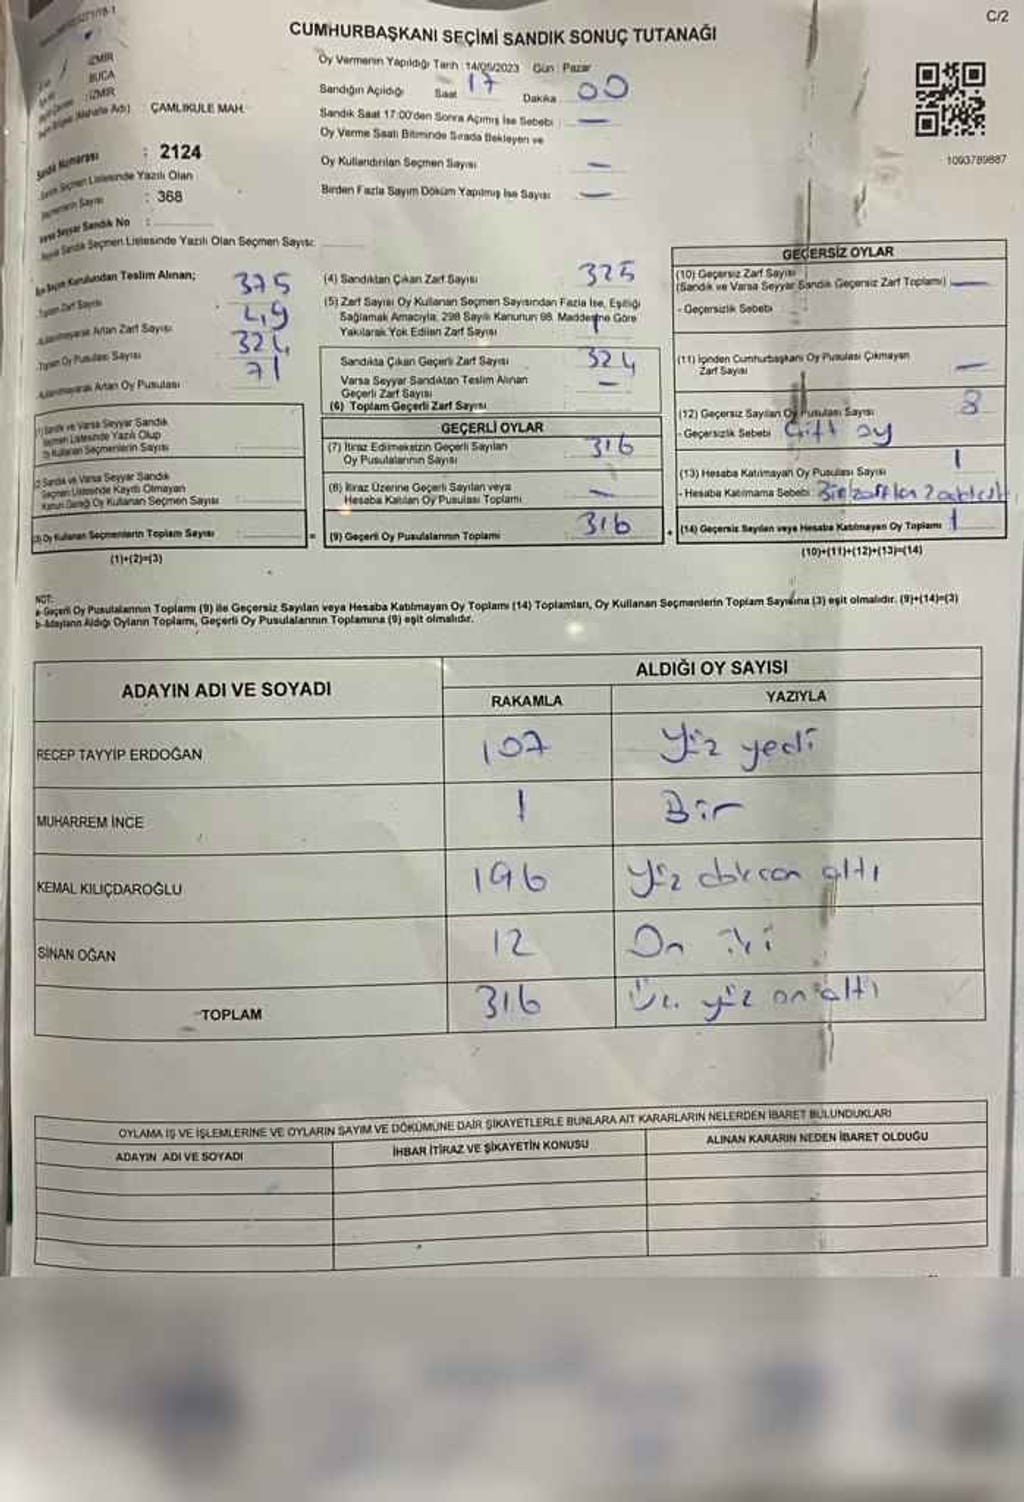 C/2
CUMHURBAŞKANI SEÇİMİ SANDIK SONUÇ TUTANAĞI
İZMİR
BUCA
İZMİR
ÇAMLIKULE MAH.
Sandık Numarası : 2124
Sandık Seçmen Listesinde Yazılı Olan
Seçmenlerin Sayısı : 368
Varsa Seyyar Sandık No :
Seyyar Sandık Seçmen Listesinde Yazılı Olan Seçmen Sayısı:
Oy Vermenin Yapıldığı Tarih : 14/05/2023 Gün : Pazar
Sandığın Açıldığı Saat 17 Dakika 00
Sandık Saat 17:00'den Sonra Açımış İse Sebebi : —
Oy Verme Saati Bitiminde Sırada Bekleyen ve
Oy Kullandırılan Seçmen Sayısı —
Birden Fazla Sayım Döküm Yapılmış İse Sayısı —
1093789887
İlçe Seçim Kurulundan Teslim Alınan;
Toplam Zarf Sayısı 375
Kullanılmayarak Artan Zarf Sayısı 49
Toplam Oy Pusulası Sayısı
Kullanılmayarak Artan Oy Pusulası 71
(1) Sandık ve Varsa Seyyar Sandık
Seçmen Listesinde Yazılı Olup
Oy Kullanan Seçmenlerin Sayısı
(2) Sandık ve Varsa Seyyar Sandık
Seçmen Listesinde Kayıtlı Olmayan
Kanun Gereği Oy Kullanan Seçmen Sayısı
(3) Oy Kullanan Seçmenlerin Toplam Sayısı
(1)+(2)=(3)
(4) Sandıktan Çıkan Zarf Sayısı 325
(5) Zarf Sayısı Oy Kullanan Seçmen Sayısından Fazla İse, Eşitliği
Sağlamak Amacıyla, 298 Sayılı Kanunun 98. Maddesine Göre
Yakılarak Yok Edilen Zarf Sayısı
Sandıkta Çıkan Geçerli Zarf Sayısı 324
Varsa Seyyar Sandıktan Teslim Alınan
Geçerli Zarf Sayısı —
(6) Toplam Geçerli Zarf Sayısı
GEÇERLİ OYLAR
(7) İtiraz Edilmeksizin Geçerli Sayılan
Oy Pusulalarının Sayısı 316
(8) İtiraz Üzerine Geçerli Sayılan veya
Hesaba Katılan Oy Pusulası Toplamı —
= (9) Geçerli Oy Pusulalarının Toplamı 316
GEÇERSİZ OYLAR
(10) Geçersiz Zarf Sayısı
(Sandık ve Varsa Seyyar Sandık Geçersiz Zarf Toplamı) —
- Geçersizlik Sebebi
(11) İçinden Cumhurbaşkanı Oy Pusulası Çıkmayan
Zarf Sayısı —
(12) Geçersiz Sayılan Oy Pusulası Sayısı 8
- Geçersizlik Sebebi Çift oy
(13) Hesaba Katılmayan Oy Pusulası Sayısı 1
- Hesaba Katılmama Sebebi Bir zarftan 2
(14) Geçersiz Sayılan veya Hesaba Katılmayan Oy Toplamı 1
(10)+(11)+(12)+(13)=(14)
NOT:
a-Geçerli Oy Pusulalarının Toplamı (9) ile Geçersiz Sayılan veya Hesaba Katılmayan Oy Toplamı (14) Toplamları, Oy Kullanan Seçmenlerin Toplam Sayısına (3) eşit olmalıdır. (9)+(14)=(3)
b-Adayların Aldığı Oyların Toplamı, Geçerli Oy Pusulalarının Toplamına (9) eşit olmalıdır.
ADAYIN ADI VE SOYADI
ALDIĞI OY SAYISI
RAKAMLA YAZIYLA
RECEP TAYYİP ERDOĞAN 107 Yüz yedi
MUHARREM İNCE 1 Bir
KEMAL KILIÇDAROĞLU 196 Yüz doksan altı
SİNAN OĞAN 12 On iki
TOPLAM 316 Üç yüz on altı
OYLAMA İŞ VE İŞLEMLERİNE VE OYLARIN SAYIM VE DÖKÜMÜNE DAİR ŞİKAYETLERLE BUNLARA AİT KARARLARIN NELERDEN İBARET BULUNDUKLARI
ADAYIN ADI VE SOYADI İHBAR İTİRAZ VE ŞİKAYETİN KONUSU ALINAN KARARIN NEDEN İBARET OLDUĞU